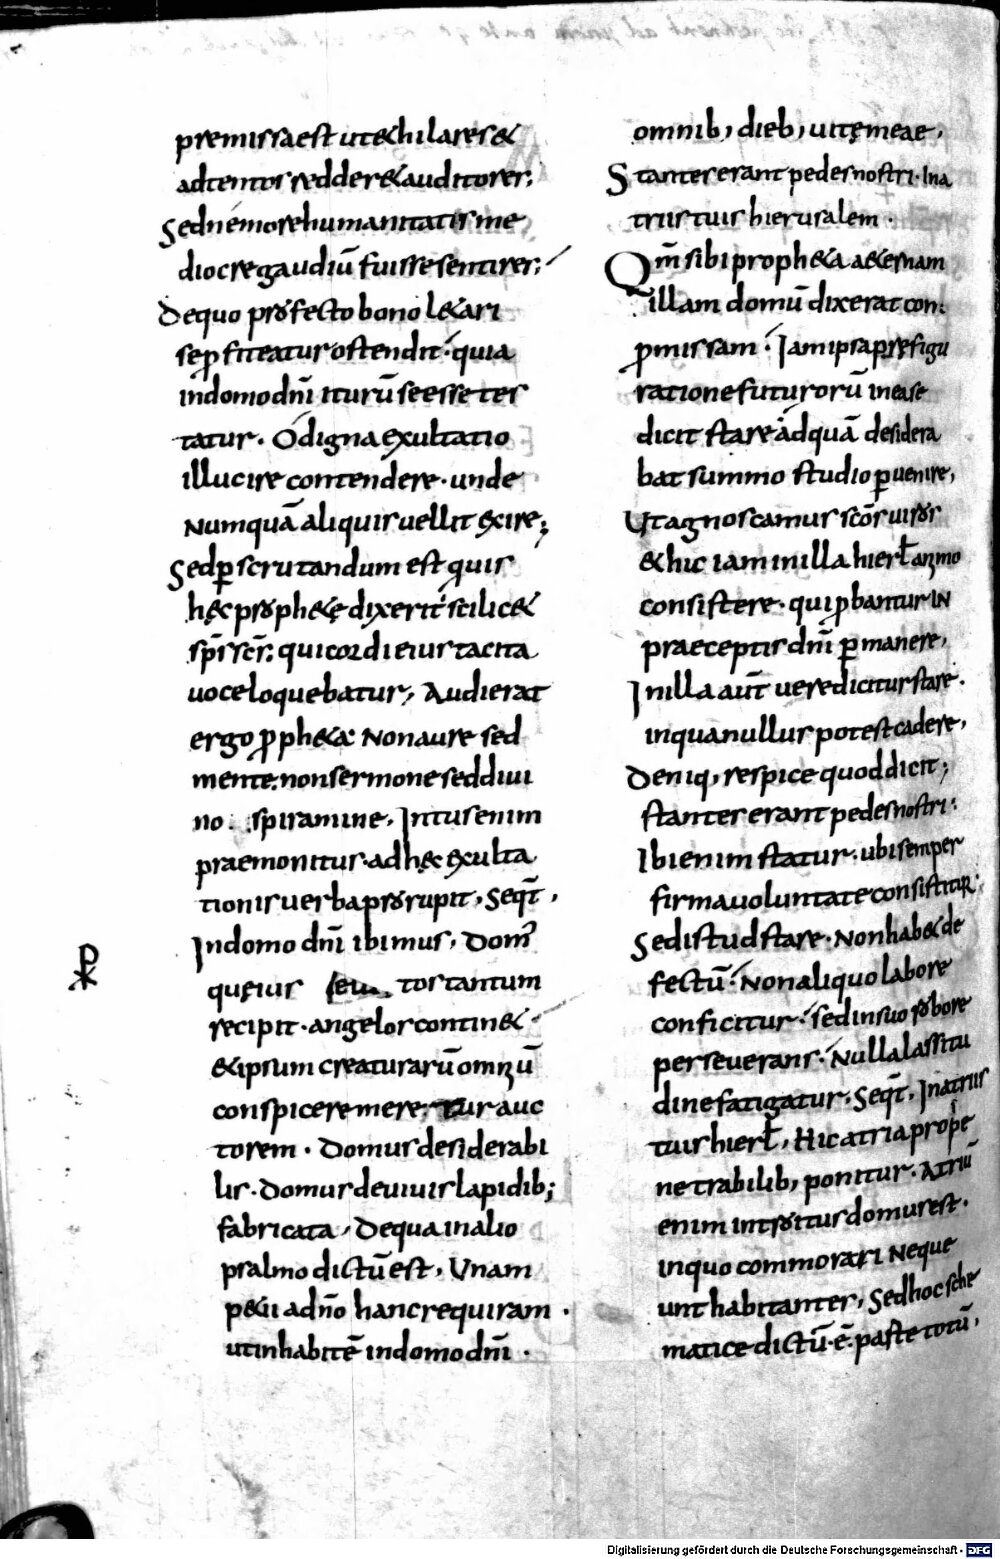 premissa est ut & hilares &
adtentos redder& auditores;
Sed ne more humanitatis me
diocre gaudiū fuisse sentires;
De quo profecto bono l&ari
se ꝓfiteatur ostendit· quia
in domo dn̄i iturū se esse tes
tatur· O digna exultatio
illuc ire contendere· unde
Numquā aliquis uellit exire;
Sed ꝑscrutandum est quis
hęc proph&ę dixerit· scilic&
sp̄s sc̄s; qui cordi eius tacita
uoce loquebatur, Audierat
ergo ꝓph&a· Non aure sed
mente· non sermone sed diui
no spiramine, Intus enim
praemonitus· ad hęc exulta
tionis uerba prorupit, Seqt̄,
In domo dn̄i ibimus, Dom᾽
quę ius tos tantum
recipit· angelos contin&·
& ipsum creaturarū omniū
conspicere mere tur auc
torem· Domus desiderabi
lis· Domus de uiuis lapidib;
fabricata, De qua in alio
psalmo dictū est, Unam
p&ii a dn̄o hanc requiram·
ut inhabitē in domo dn̄i·
omnib, dieb, uitę meae,
Stantes erant pedes nostri· In a
triis tuis hierusalem·
Qm̄ sibi proph&a a&ernam
illam domū dixerat con
ꝓmissam· Iam ipsa pręfigu
ratione futurorū in ea se
dicit stare ad quā desidera
bat summo studio ꝑuenire,
Ut agnoscamus sc̄os uiros
& hic iam in illa hierl̄ animo
consistere· qui ꝓbantur IN
praeceptis dn̄i ꝑmanere,
In illa aut̄ uere dicitur stare·
in qua nullus potest cadere,
Deniq, respice quod dicit;
stantes erant pedes nostri·
Ibi enim statur· ubi semper
firma uoluntate consistitur·
Sed istud stare· Non hab& de
fectū· Non aliquo labore
conficitur· sed in suo robore
perseuerans· Nulla lassitu
dine fatigatur· Seqt̄, In atriis
tuis hierl̄, Hic atria pro pe
netrabilib, ponitur· Atriū
enim introitus domus est·
in quo commorari Neque
unt habitantes, Sed hoc sche
matice dictū· ē· ꝑ aꝑte totū,
ꝶ
Digitalisierung gefördert durch die Deutsche Forschungsgemeinschaft - DFG